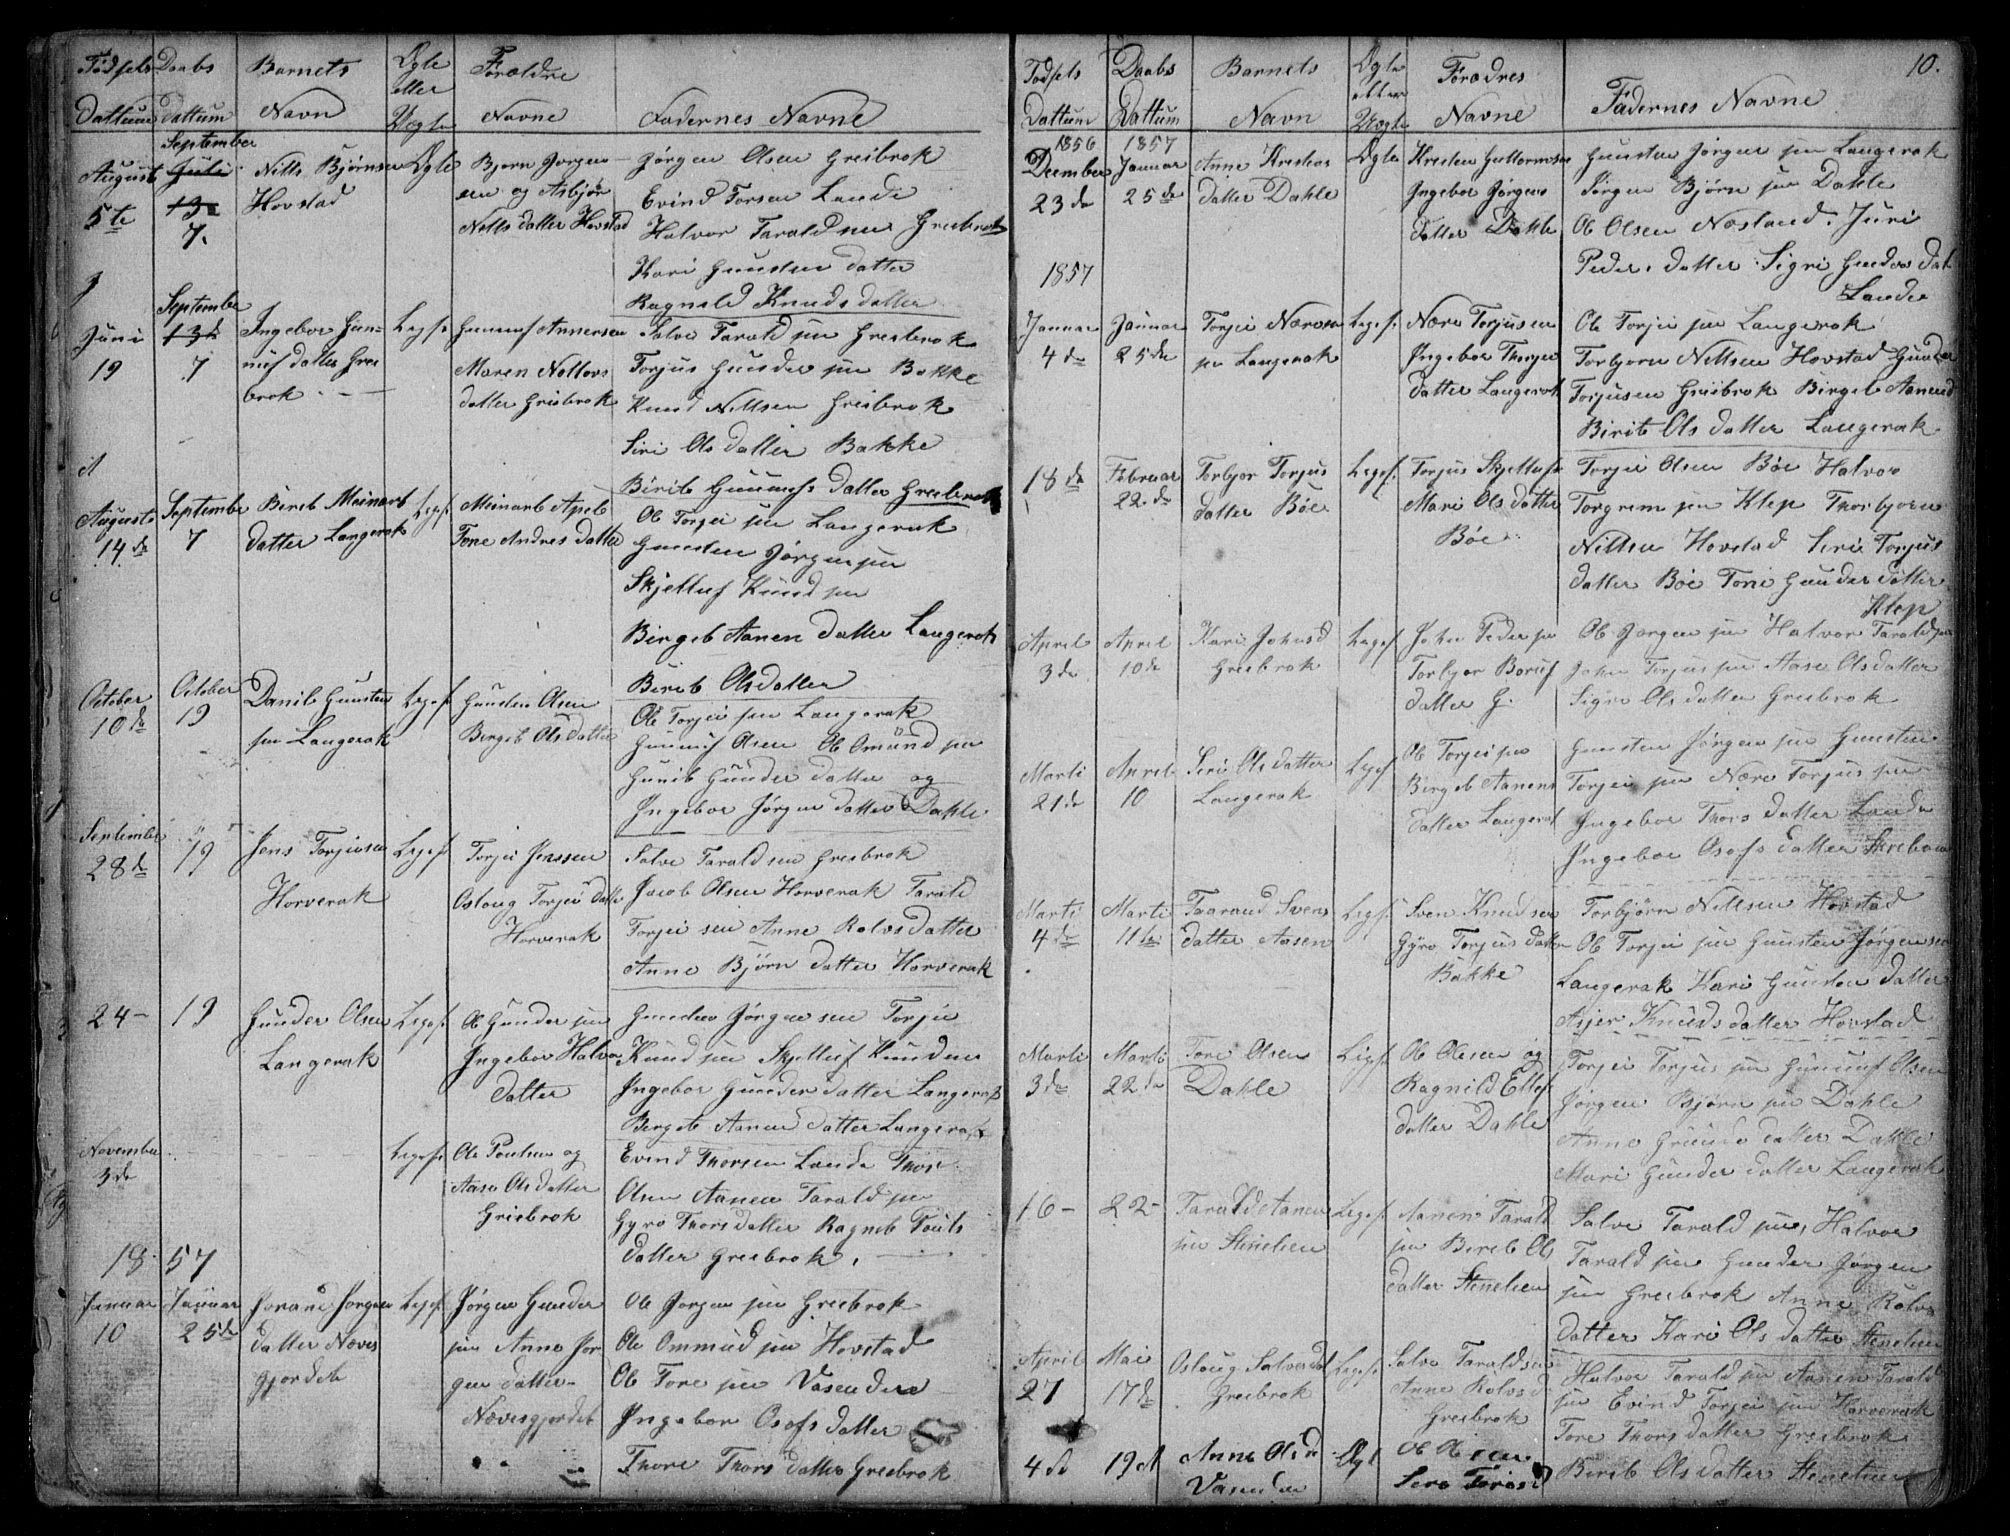 Fødsels Dattum
Daabs dattum
Barnets Navn
Ægte eller Uægte
Forældre Navne
Fadernes Navne
August 5te
September 7.
Nills Bjørnsen
Hovstad
Ægte
Bjørn Jørgen
sen og Asbjør
Nills datter Hovstad
Jørgen Olsen Greibrok
Evind Torsen Lande
Halvor Tarald sen Greibrok
Kari Gunsten datter
Ragnild Knuds datter
Juni 19
September 7
Ingebor Gun=
nuf datter Grei
brok
Legef.
Gunnuf Annersen
Maren Nottovs
datter Greibrok
Salve Tarald sen Greibrok
Torjus Gunder sen Bakke
Knud Nillsen Greibrok
Siri Ols datter Bakke
Birit Gunnufs datter Greibrok
August 14de
September 7
Bireb Meinart
datter Langerak
Legef.
Meinart Apeb
Tone Andres datter
Ob Torjei sen Langerak
Gunsten Jørgen sen
Skjelluf Knud sen
Birgeb Aanen datter Langerak
Bireb Olsdatter
October 10de
October 19
Danil Gunsten
sen Langerak
Legef.
Gunsten Olsen
Birgeb Ols datter
Ob Torjei sen Langerak
Gunnuf Olsen Ob Omund sen
Gunil Gunder datter og
Ingebor Jørgen datter Dahle
September 28de
19
Jens Torjeisen
Horverak
Legef.
Torjei Jenssen
Oslaug Torjei datter
Horverak
Salve Tarald sen Greibrok
Jacob Olsen Horverak Tarald
Torjei sen Anne Rolvs datter
Anne Bjørn datter Horverak
24-
19
Gunder Olsen
Langerak
Legef.
Ob Gunder sen
Ingebor Halvor
datter
Gunsten Jørgen sen Torjei
Knud sen Skjelluf Knud sen
Ingebor Gunder datter Langerak
Bergeb Aanen datter Langerak
November 3de
Legef.
Ob Poulsen og
Aase Olsdatter
Greibrok
Evind Thorsen Lande Thor
Olsen Aanen Tarald sen
Gyro Thorsdatter Ragneb Pouls
datter Greibrok.
1857
Januar 10
Januar 25de
Jorand Jørgen
datter Næves
gjordet
Legef.
Jørgen Gunder
sen Anne Jør
gen datter
Nævesgjordet
Ob Jørgen sen Greibrok
Ole Ommud sen Hovstad
Ob Tore sen Vasenden
Ingebor Osofs datter
Thore Thors datter Greibrok
10.
Fødsels Dattum
Daabs Dattum
Barnets Navn
Ægte eller Uægte
Forædres Navne
Fadernes Navne
1856
Decmber 23de
1857
Januar 25de
Anne Krestens
datter Dahle
Ægte
Kresten Guttormsen
Ingebor Jørgens
datter Dahle
Gunsten Jørgen sen Langerak
Jørgen Bjørn sen Dahle
Ob Olsen Nosland. Juri
Peder. datter. Sigri Gunders dat
Lande
1857
Januar 4de
Januar 25de
Torjei Næresen
sen Langerak
Legef.
Nære Torjusen
Ingebor Thorjer
datter Langerak
Ob Torjei sen Langerak
Torbjorn Nillsen Hovstad Gunder
Torjusen Greibrok Birgeb Aanend
Birit Ols datter Langerak
18de
Februar 22de
Torbjor Torjus
datter Bøe
Legef.
Torjus Skjellufs
Mari Ols datter
Bøe
Torjei Olsen Bøe Halvor
Torgrem sen Klep Thorbjorn
Nillsen Hovstad Siri Torjus
datter Bøe Toni Gunder datter
Klep
April 3de
April 10de
Kari Johnsd
Greibrok
Legef.
John Peder sen
Torbjor Boruf
datter G.
Ob Jørgen sen Halvor Tarald sen
John Torjus sen Aase Olsdatter
Sigre Ols datter Greibrok
Marti 21de
April 10
Seri Ols datter
Langerak
Legef.
Ob Torjei sen
Birgeb Aanens
datter Langerak
Gunsten Jørgen sen Gunsten
Torjei sen Nære Torjus sen
Ingebor Thors datter Lande
Ingebor Osofs datter
Marti 4de
Marti 11te
Taarand Svens
datter Aasen
Legef.
Sven Knudsen
Gyro Torjus datter
Bakke
Torbjørn Nillsen Hovstad
Ob Torjei sen Gunsten Jørgensen
Langerak Kari Gunsten datter
Asjer Knuds datter Hovstad
Marti 3de
Marti 22de
Tore Olsen
Dahle
Legef.
Ob Olesen og
Ragnild Ellef
datter Dahle
Torjei Torjus sen Gunnuf Olsen
Jørgen Bjørn sen Dahle
Anne Gunde datter Dahle
Mari Gunder datter Langerak
16-
22-
Tarald Aanen
sen Stenelien
Legef.
Aanen Tarald
sen Bireb Ols
datter Stenelien
Salve Tarald sen, Halvor
Tarald sen Gunder Jørgen
sen Greibrok Anne Rolvs
datter Kari Ols datter Stenelien
April 27
Mai 17de
Oslaug Salvesdat
Greibrok
Legef.
Salve Taraldsen
Anne Rolvsd
Greibrok
Halvor Tarald sen Aanen Tarald
sen Evind Torjei sen Horverak
Tore Thors datter Greibrok
Bireb Ols datter Stenelien
4de
19d
Anne Olsd
Vasenden
Ægt
Ob Olsen
Sero Torosd